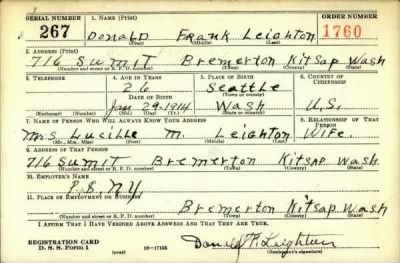 SERIAL NUMBER 1. NAME (Print) ORDER NUMBER
267 Donald Frank Leighton 1760
(First) (Middle) (Last)
2. ADDRESS (Print)
716 Sumit Bremerton Kitsap Wash
(Number and street or R. F. D. number) (Town) (County) (State)
3. TELEPHONE 4. AGE IN YEARS 5. PLACE OF BIRTH 6. COUNTRY OF CITIZENSHIP
26 Seattle
DATE OF BIRTH (Town or county)
Jan 29-1914 Wash U.S.
(Exchange) (Number) (Mo.) (Day) (Yr.) (State or country)
7. NAME OF PERSON WHO WILL ALWAYS KNOW YOUR ADDRESS 8. RELATIONSHIP OF THAT PERSON
Mrs Lucille M. Leighton Wife.
(Mr., Mrs., Miss) (First) (Middle) (Last)
9. ADDRESS OF THAT PERSON
716 Sumit Bremerton Kitsap Wash
(Number and street or R. F. D. number) (Town) (County) (State)
10. EMPLOYER'S NAME
P.S. N.Y.
11. PLACE OF EMPLOYMENT OR BUSINESS
Bremerton Kitsap Wash
(Number and street or R. F. D. number) (Town) (County) (State)
I AFFIRM THAT I HAVE VERIFIED ABOVE ANSWERS AND THAT THEY ARE TRUE.
REGISTRATION CARD
D. S. S. Form 1 (over) 16-17105 Donald F. Leighton
(Registrant's signature)